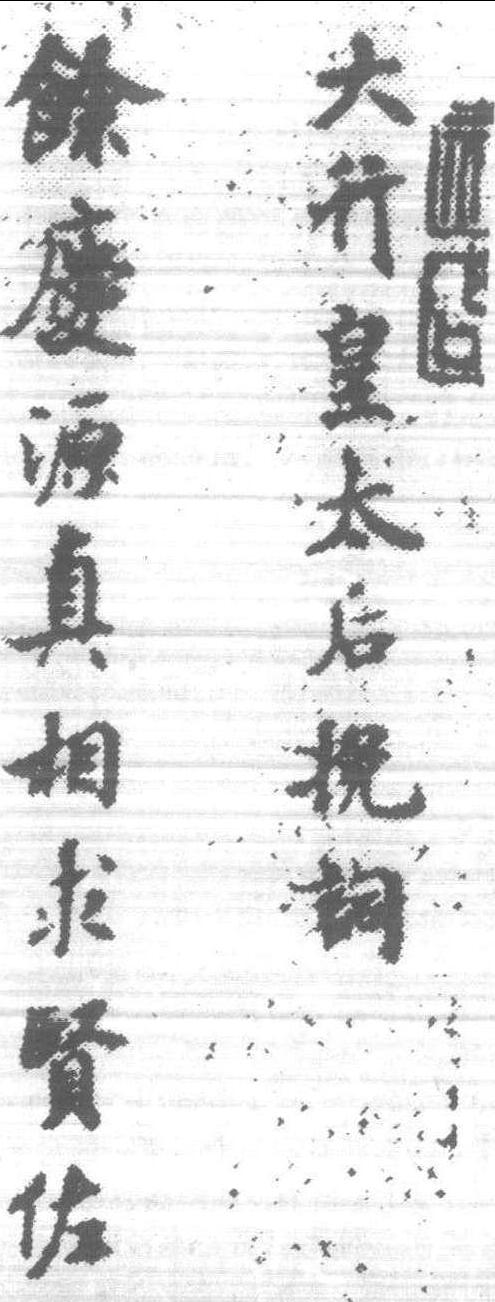 大行皇太后挽詞
餘慶源真相求賢佐